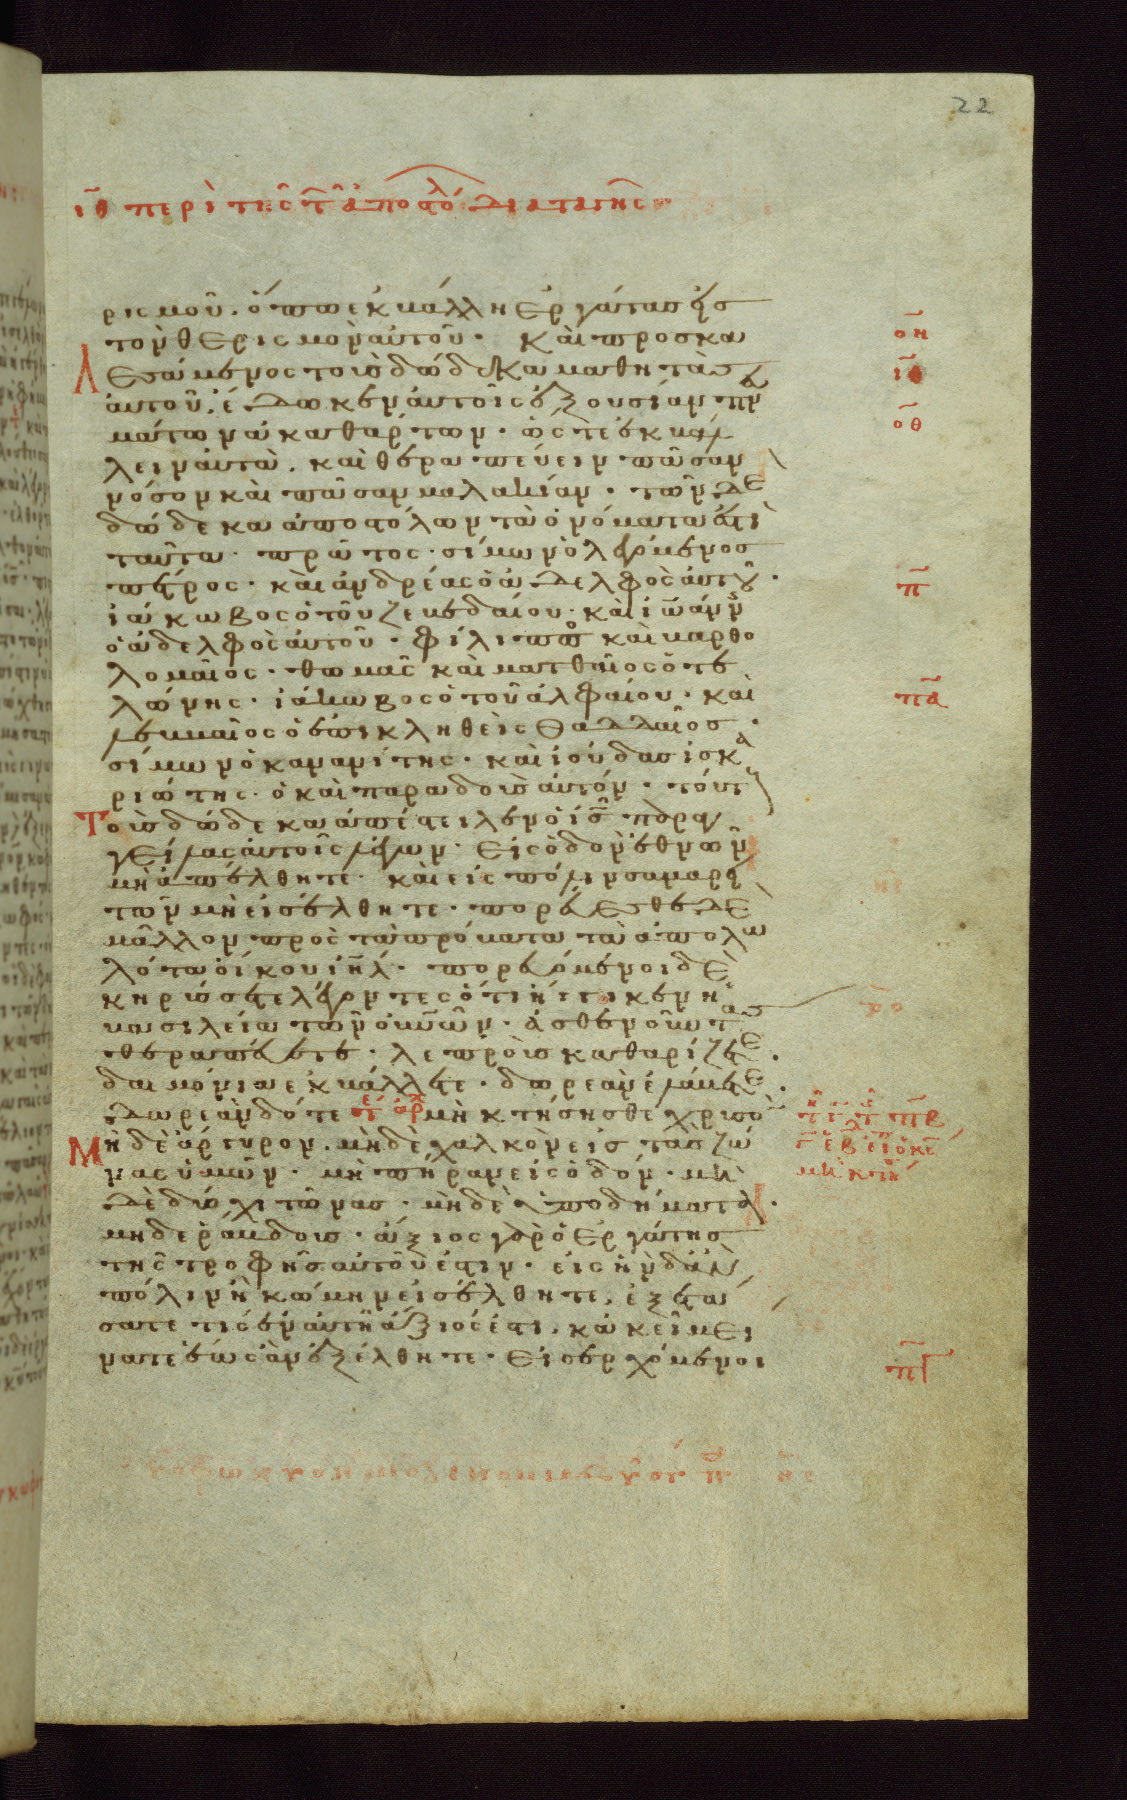 22
ιθ περὶ τῆς τῶν ἀποστόλ διαταγῆς
ρισμοῦ. ὅπως ἐκβάλλη ἐργάτας εἰς
τὸν θερισμὸν αὐτοῦ. Καὶ προσκα
οη
λεσάμενος τοὺς δώδεκα μαθητὰς
ιθ
αὐτοῦ, ἔδωκεν αὐτοῖς ἐξουσίαν πν
μάτων ἀκαθάρτων. ὥστε ἐκβάλ
οθ
λειν αὐτὰ. καὶ θεραπεύειν πᾶσαν
νόσον καὶ πᾶσαν μαλακίαν. τῶν δὲ
δώδεκα ἀποστόλων τὰ ὀνόματα ἐστὶ
ταῦτα. πρῶτος. σίμων ὁ λεγόμενος
πέτρος. καὶ ἀνδρέας ὁ ἀδελφὸς αὐτοῦ.
π
ἰάκωβος ὁ τοῦ ζεβεδαίου. καὶ ἰωάννης
ὁ ἀδελφὸς αὐτοῦ. φίλιππος καὶ βαρθο
λομαῖος. θωμᾶς καὶ ματθαῖος ὁ τε
λώνης. ἰάκωβος ὁ τοῦ ἀλφαίου. καὶ
πα
λεββαῖος ὁ ἐπικληθεὶς θαδδαῖος.
σίμων ὁ κανανίτης. καὶ ἰούδας ἰσκα
ριώτης. ὁ καὶ παραδοὺς αὐτόν. τούτ
οὺς δώδεκα ἀπέστειλεν ὁ ις παραγ
γείλας αὐτοῖς λέγων. εἰς ὁδὸν ἐθνῶν
μὴ ἀπέλθητε. καὶ εἰς πόλιν σαμαρει
τῶν μὴ εἰσέλθητε. πορεύεσθε δὲ
μᾶλλον πρὸς τὰ πρόβατα τὰ ἀπολω
λότα οἴκου ιηλ. πορευόμενοι δὲ
κηρύσσετε λέγοντες ὅτι ἤγγικεν ἡ
βασιλεία τῶν οὐνῶν. ἀσθενοῦντας
θεραπεύετε. λεπροὺς καθαρίζετε.
δαιμόνια ἐκβάλλετε. δωρεὰν ἐλάβετε.
δωρεὰν δότε μὴ κτήσησθε χρυσὸν
μηδὲ ἄργυρον. μηδὲ χαλκὸν εἰς τὰς ζώ
νας ὑμῶν. μὴ πήραν εἰς ὁδόν. μη
δὲ δύο χιτῶνας. μηδὲ ὑποδήματα.
μηδὲ ῥάβδους. ἄξιος γὰρ ὁ ἐργάτης
τῆς τροφῆς αὐτοῦ ἐστιν. εἰς ἣν δ' ἂν
πόλιν ἢ κώμην εἰσέλθητε, ἐξετά
σατε τίς ἐν αὐτῇ ἄξιός ἐστι. κἀκεῖ μεί
νατε ἕως ἂν ἐξέλθητε. Εἰσερχόμενοι
πγ